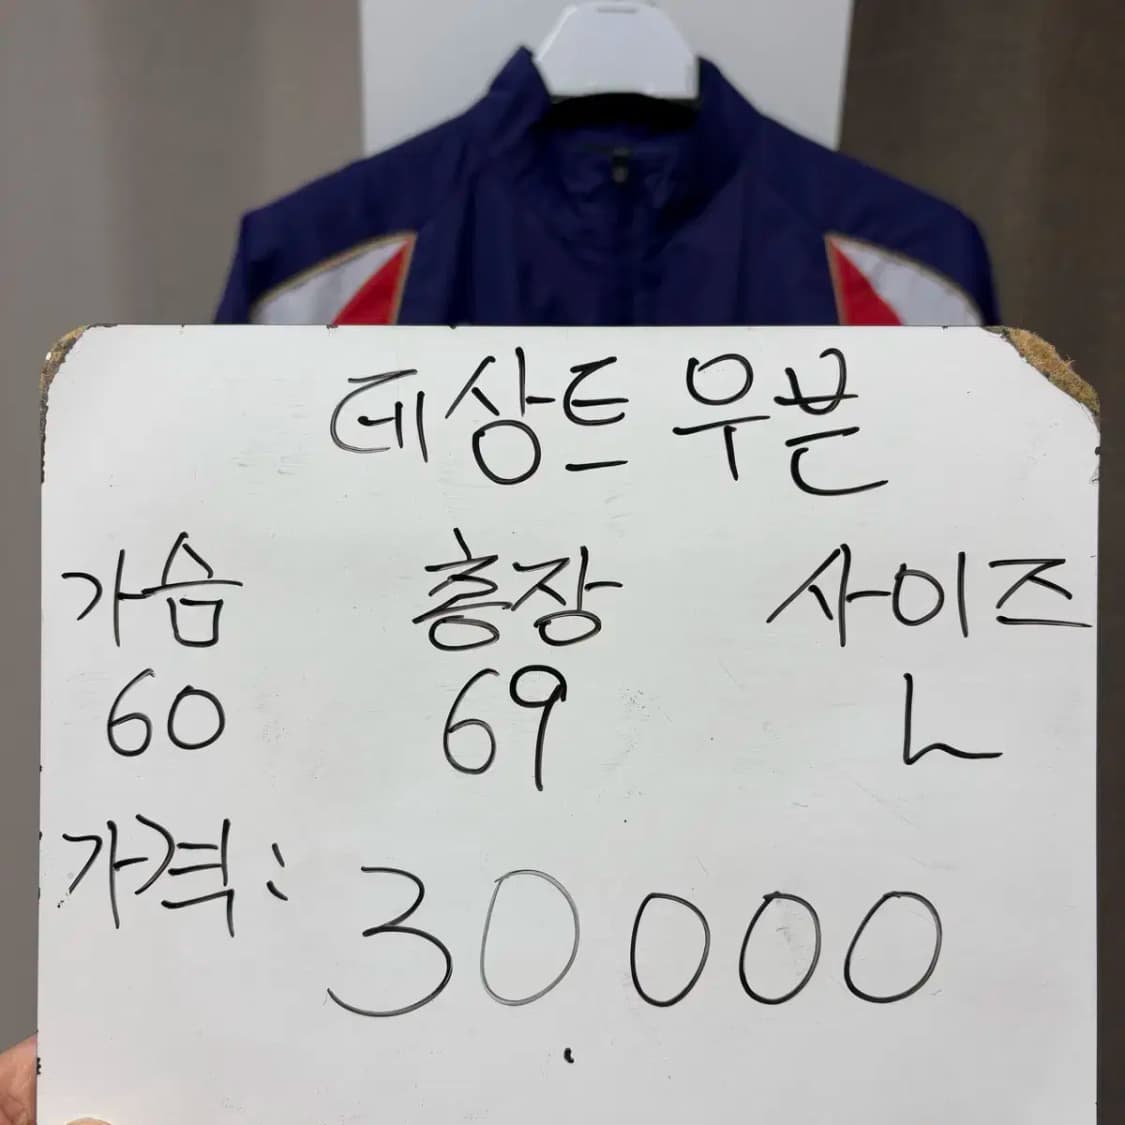 데상트 우븐
가슴 총장 사이즈
60 69 L
가격: 30000